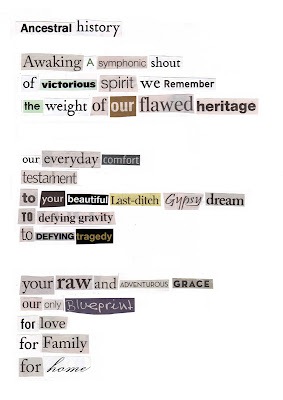 Ancestral history
Awaking A symphonic shout
of victorious spirit we Remember
the weight of our flawed heritage
our everyday comfort
testament
to your beautiful Last-ditch Gypsy dream
TO defying gravity
to DEFYING tragedy
your raw and ADVENTUROUS GRACE
our only Blueprint
for love
for Family
for home